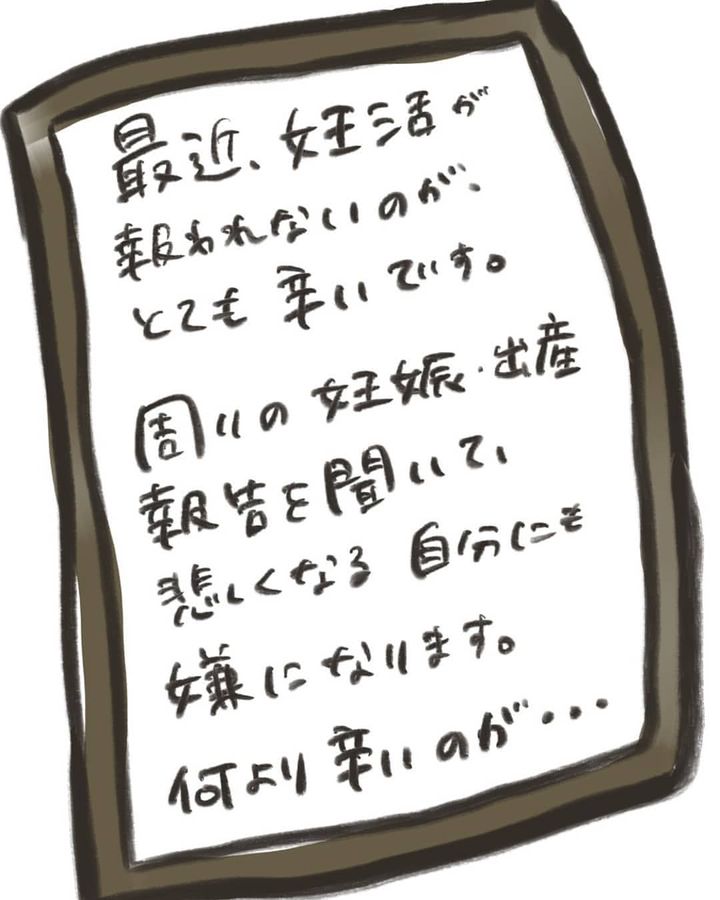 最近、妊活が
報われないのが、
とても辛いです。
周りの妊娠・出産
報告を聞いて、
悲しくなる自分にも
嫌になります。
何より辛いのが・・・